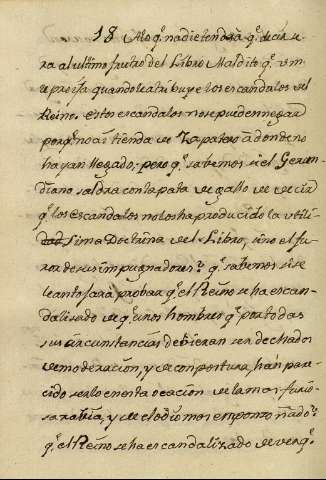 18 A lo q.e nadie tendrà q.e decir se-
ra al ultimo fruto del Libro Maldito q.e vm
re proysa quando le atribuye los escandalos del
Reino. estos escandalos no se pueden negar
porq.e no ai tienda de Zapatero à donde no
hayan llegado; pero q.e sabemos si el Gerun-
diano saldra con la pata de gallo de decir
q.e los escandalos no los ha producido la utili-
dad sima Doctrina del Libro, sino el fu-
ror de sus impugnadores? q.e sabemos si se
levantarà à probar q.e el Reino se ha escan-
dalizado de q.e unos hombres q.e por todas
sus circunstancias debieran ser dechados
de moderacion, y de compostura, hàn pare-
cido serlo en esta ocacion de la mas furio-
sa rabia, y de el odio mas emponzoñado?
q.e el Reino se ha escandalizado de ver q.e